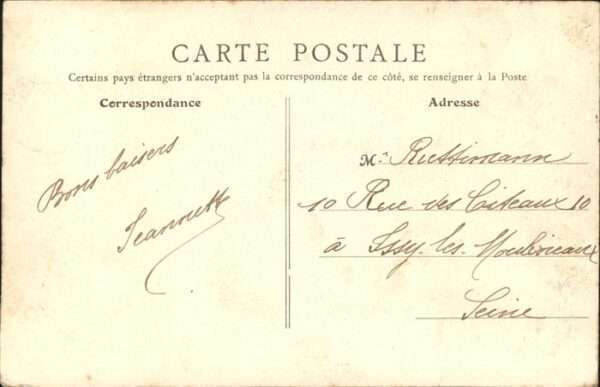 CARTE POSTALE
Certains pays étrangers n'acceptant pas la correspondance de ce côté, se renseigner à la Poste
Correspondance
Adresse
Bons baisers
Jeannette
M.r Ruttimann
10 Rue des Citeaux 10
à Issy-les-Moulineaux
Seine